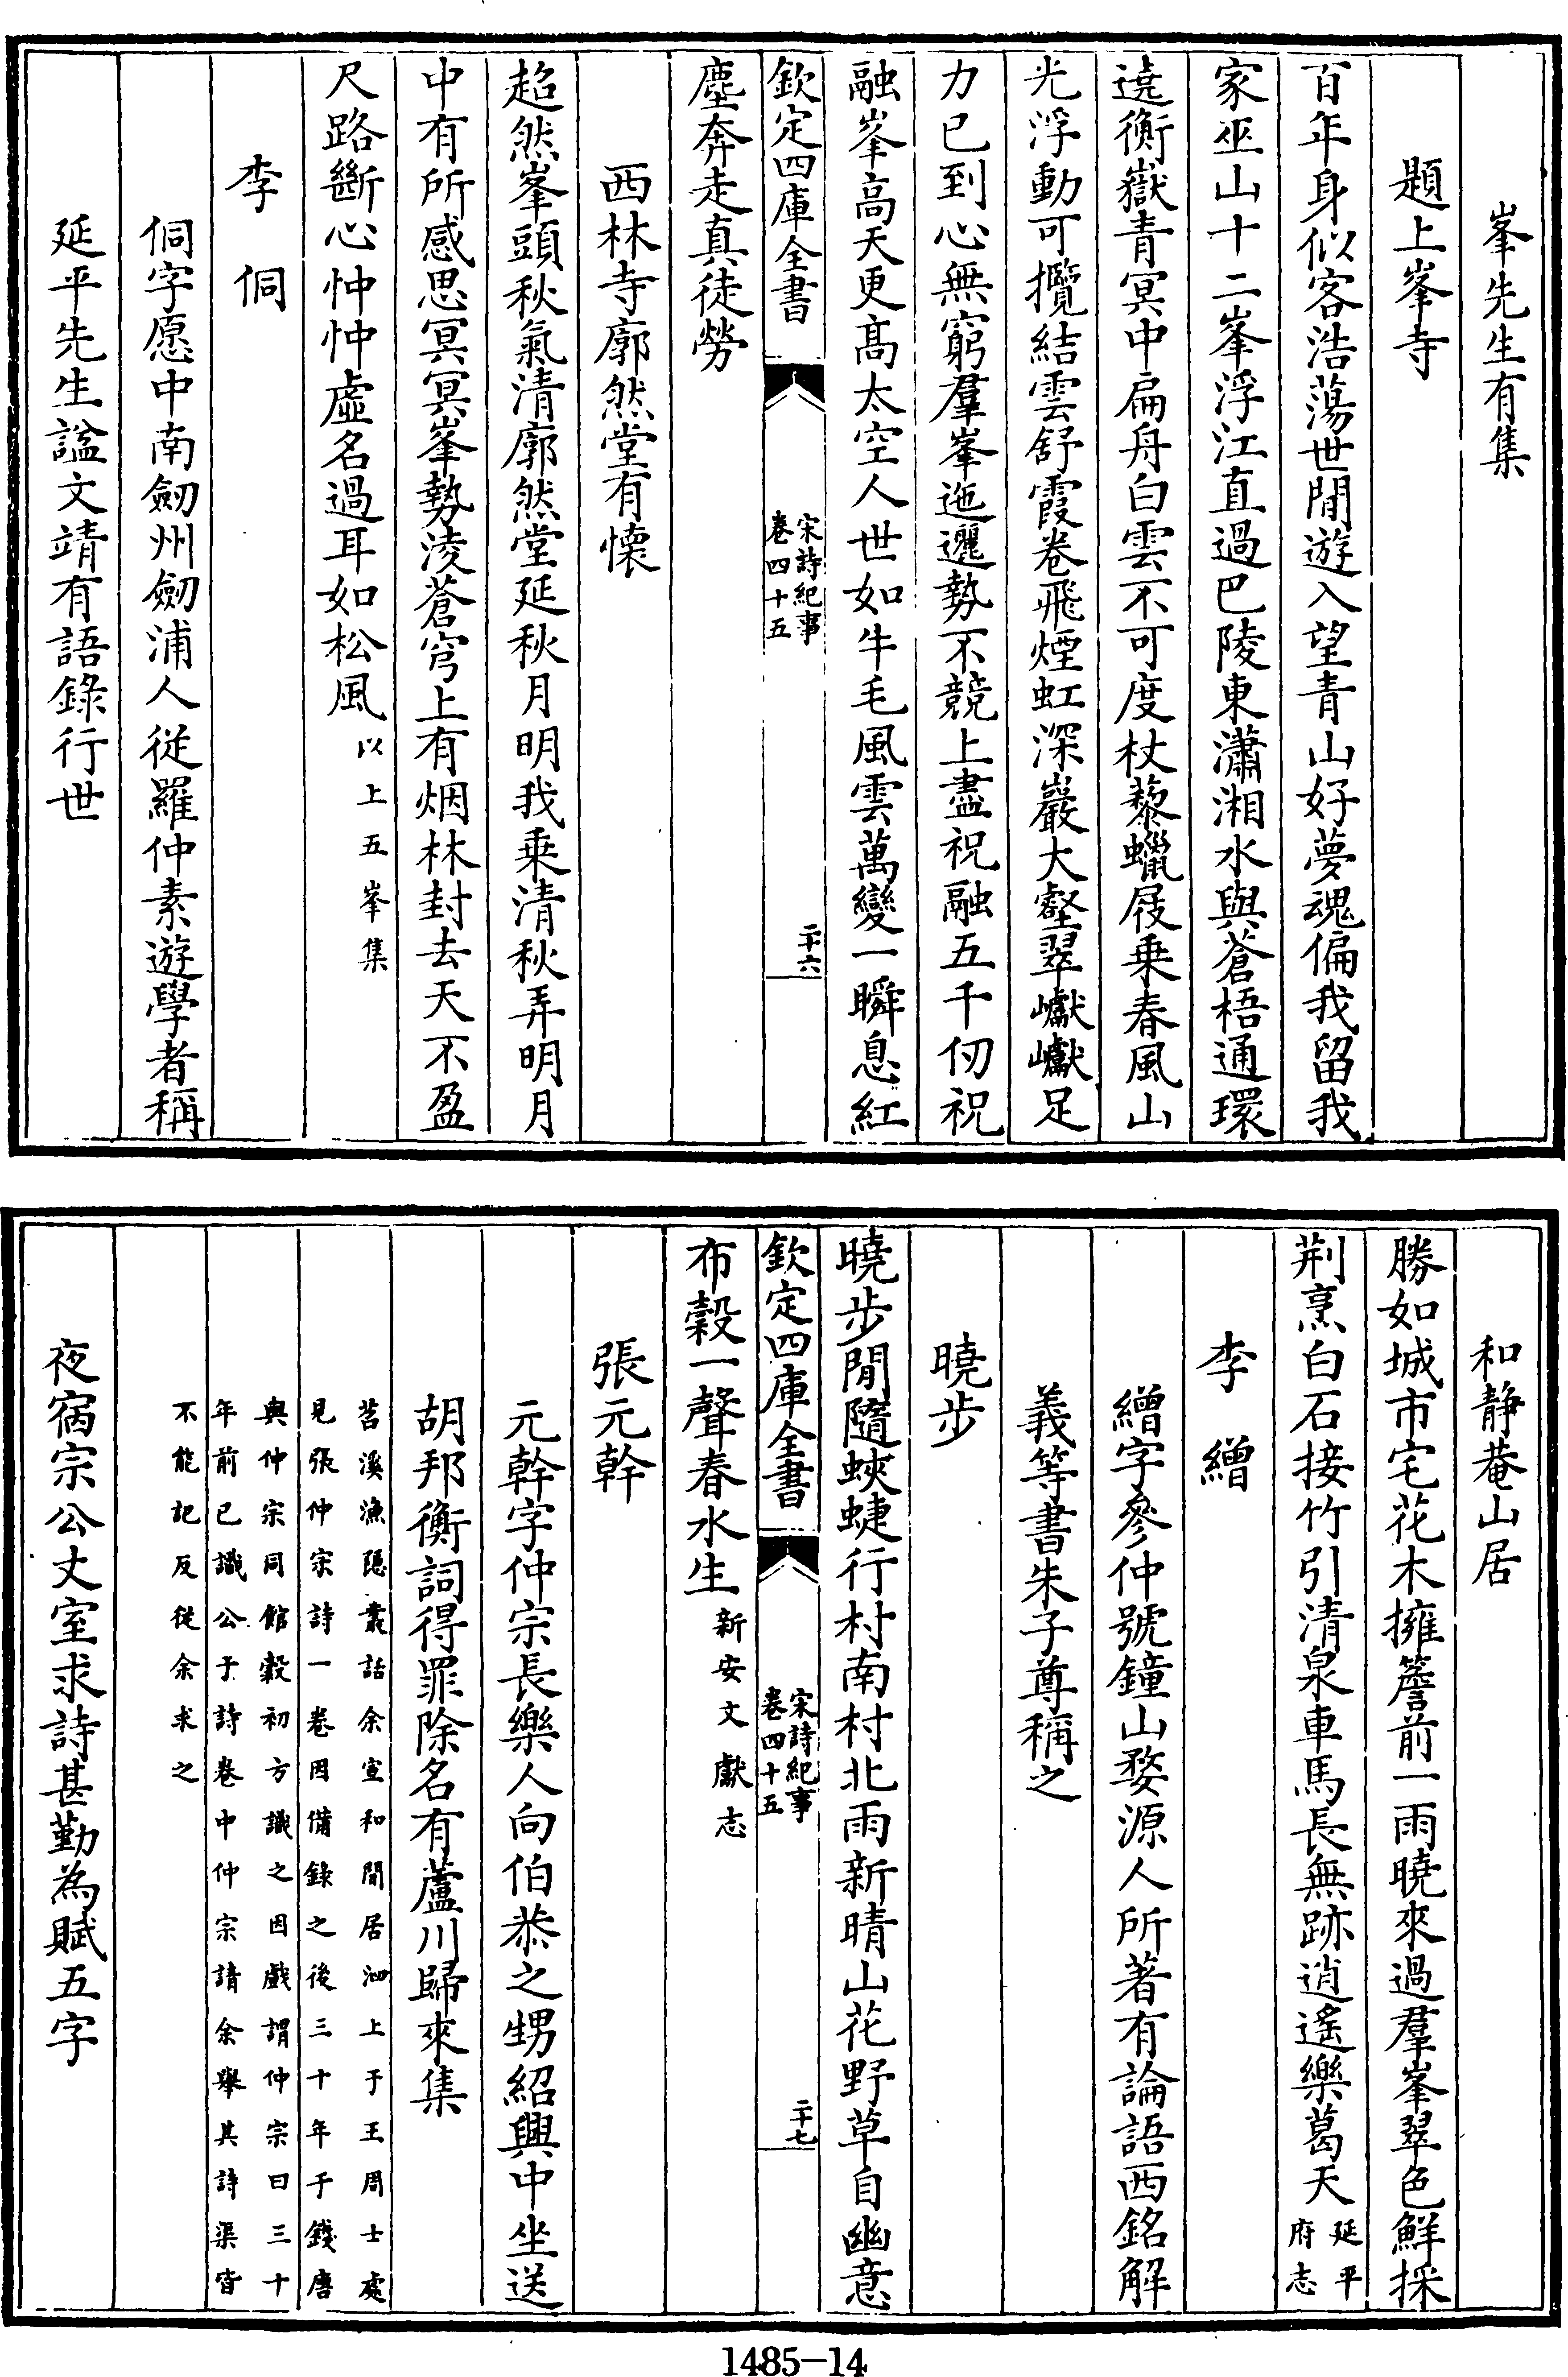 峯先生有集
題上峯寺
百年身似客浩蕩世閒遊入望青山好夢魂偏我留我
家巫山十二峯浮江直過巴陵東瀟湘水與蒼梧通環
遶衡嶽青冥中扁舟白雲不可度杖藜蠟屐乗春風山
光浮動可攬結雲舒霞卷飛煙虹深巖大壑翠巘巘足
力已到心無窮羣峯迤邐勢不競上盡祝融五千仞祝
融峯高天更髙太空人世如牛毛風雲萬變一瞬息紅
欽定四庫全書
宋詩紀事
卷四十五
二十六
塵奔走真徒勞
西林寺廓然堂有懷
超然峯頭秋氣清廓然堂延秋月明我乗清秋弄明月
中有所感思冥冥峯勢淩蒼穹上有烟林封去天不盈
尺路斷心忡忡虛名過耳如松風以上五峯集
李侗
侗字愿中南劒州劒浦人從羅仲素遊學者稱
延平先生諡文靖有語錄行世
和靜菴山居
勝如城市宅花木擁簷前一雨曉來過羣峯翠色鮮採
荆烹白石接竹引清泉車馬長無跡逍遙樂葛天延平
府志
李繒
繒字參仲號鐘山婺源人所著有論語西銘解
義等書朱子尊稱之
曉步
曉步閒隨蛺蜨行村南村北雨新晴山花野草自幽意
欽定四庫全書
宋詩紀事
卷四十五
二十七
布穀一聲春水生新安文獻志
張元幹
元幹字仲宗長樂人向伯恭之甥紹興中坐送
胡邦衡詞得罪除名有蘆川歸來集
苕溪漁隱叢話余宣和間居泗上于王周士處
見張仲宗詩一卷因借錄之後三十年于錢唐
與仲宗同館穀初方識之因戲謂仲宗曰三十
年前已識公于詩卷中仲宗請余舉其詩渠皆
不能記反從余求之
夜宿宗公丈室求詩甚勤為賦五字
1485-14